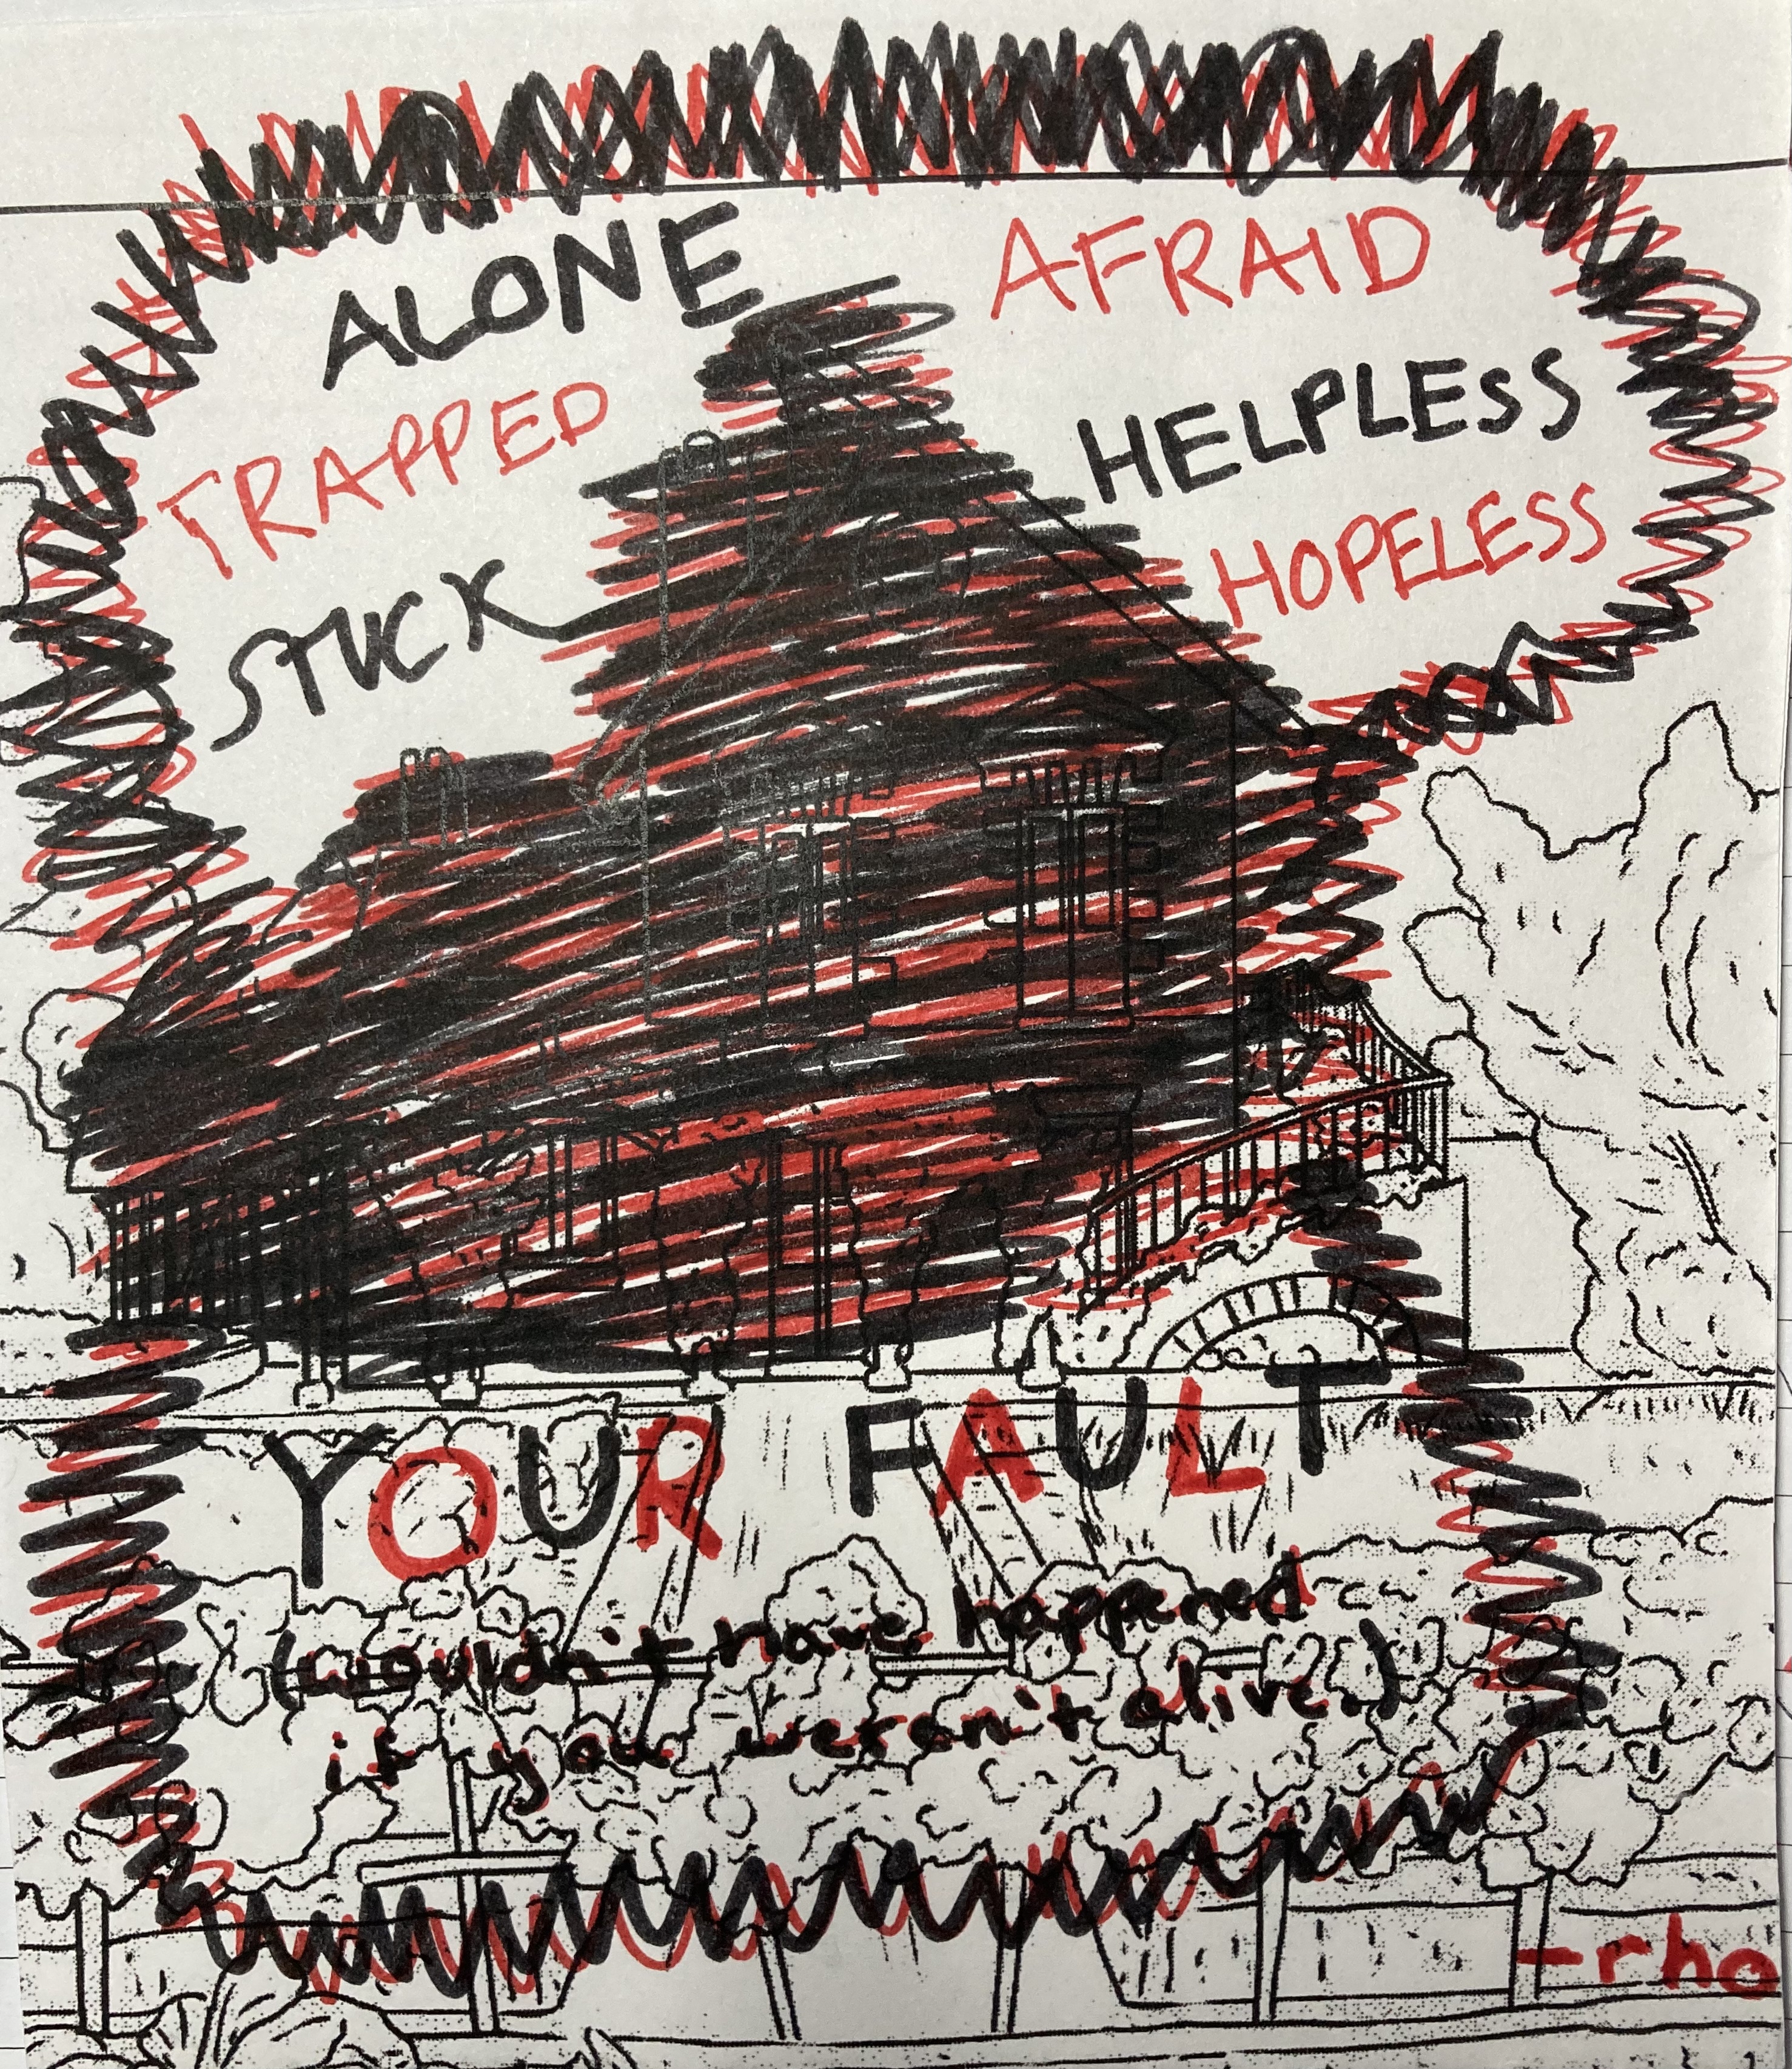 ALONE
AFRAID
TRAPPED
HELPLESS
STUCK
HOPELESS
YOUR FAULT
(wouldn't have happened
if you weren't alive.)
-rho